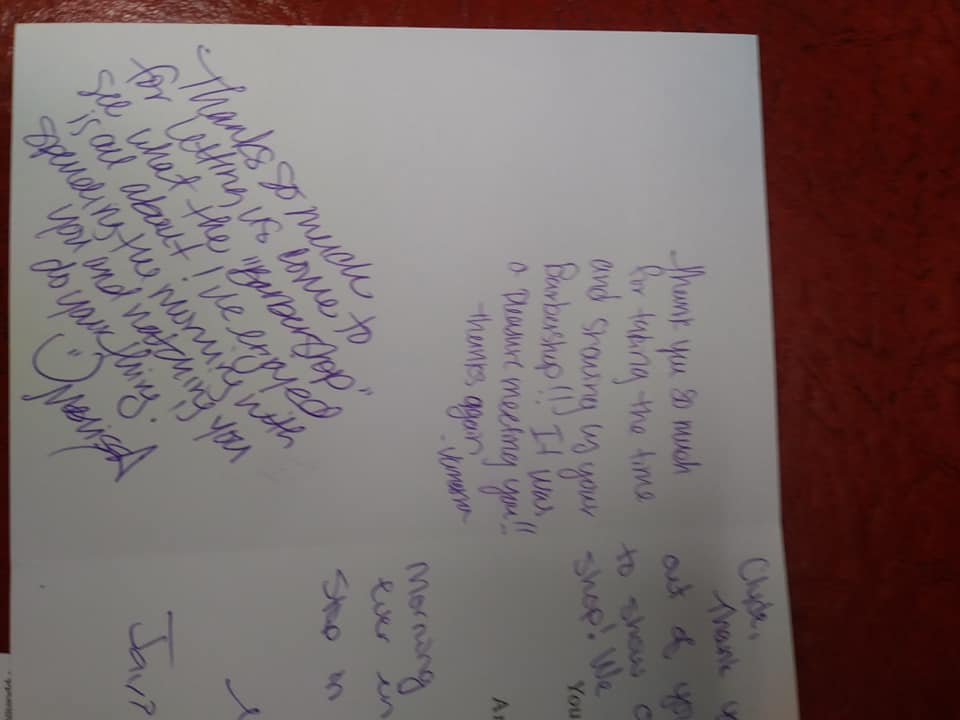 Thanks so much
for letting us come to
see what the "Barbershop"
is all about! I've enjoyed
spending the morning with
you and watching you
do your thing.
Thank you so much
for taking the time
and sharing us your
Barbershop!! It was
a pleasure meeting you!!
-thanks again
-Vanessa
Thank
out of yo
to show
shop! We
You
Morning
ever
Stop in